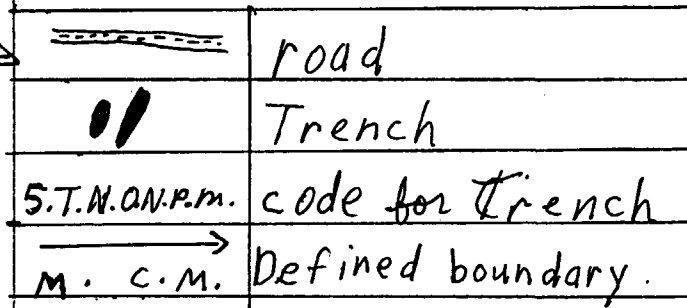 road
Trench
S.T.N.O.N.P.m. code for Trench
M. C.M. Defined boundary.